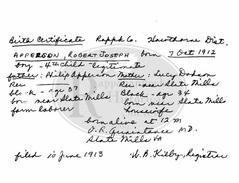 Birth Certificate Rappk Co. Hawthorne Dist.
APPERSON, ROBERT JOSEPH born 7 Oct 1912
boy - 4th child - legitimate
father: Philip Apperson Mother: Lucy Dodson
Res Res - near Slate Mills
blk - age 37 Black - age 34
bor near Slate Mills bor near Slate Mills
laborer housewife
born alive at 12 M
O.R. Quaintance MD.
Slate Mills Va
filed 10 June 1913 W.B. Kilby, Registrar